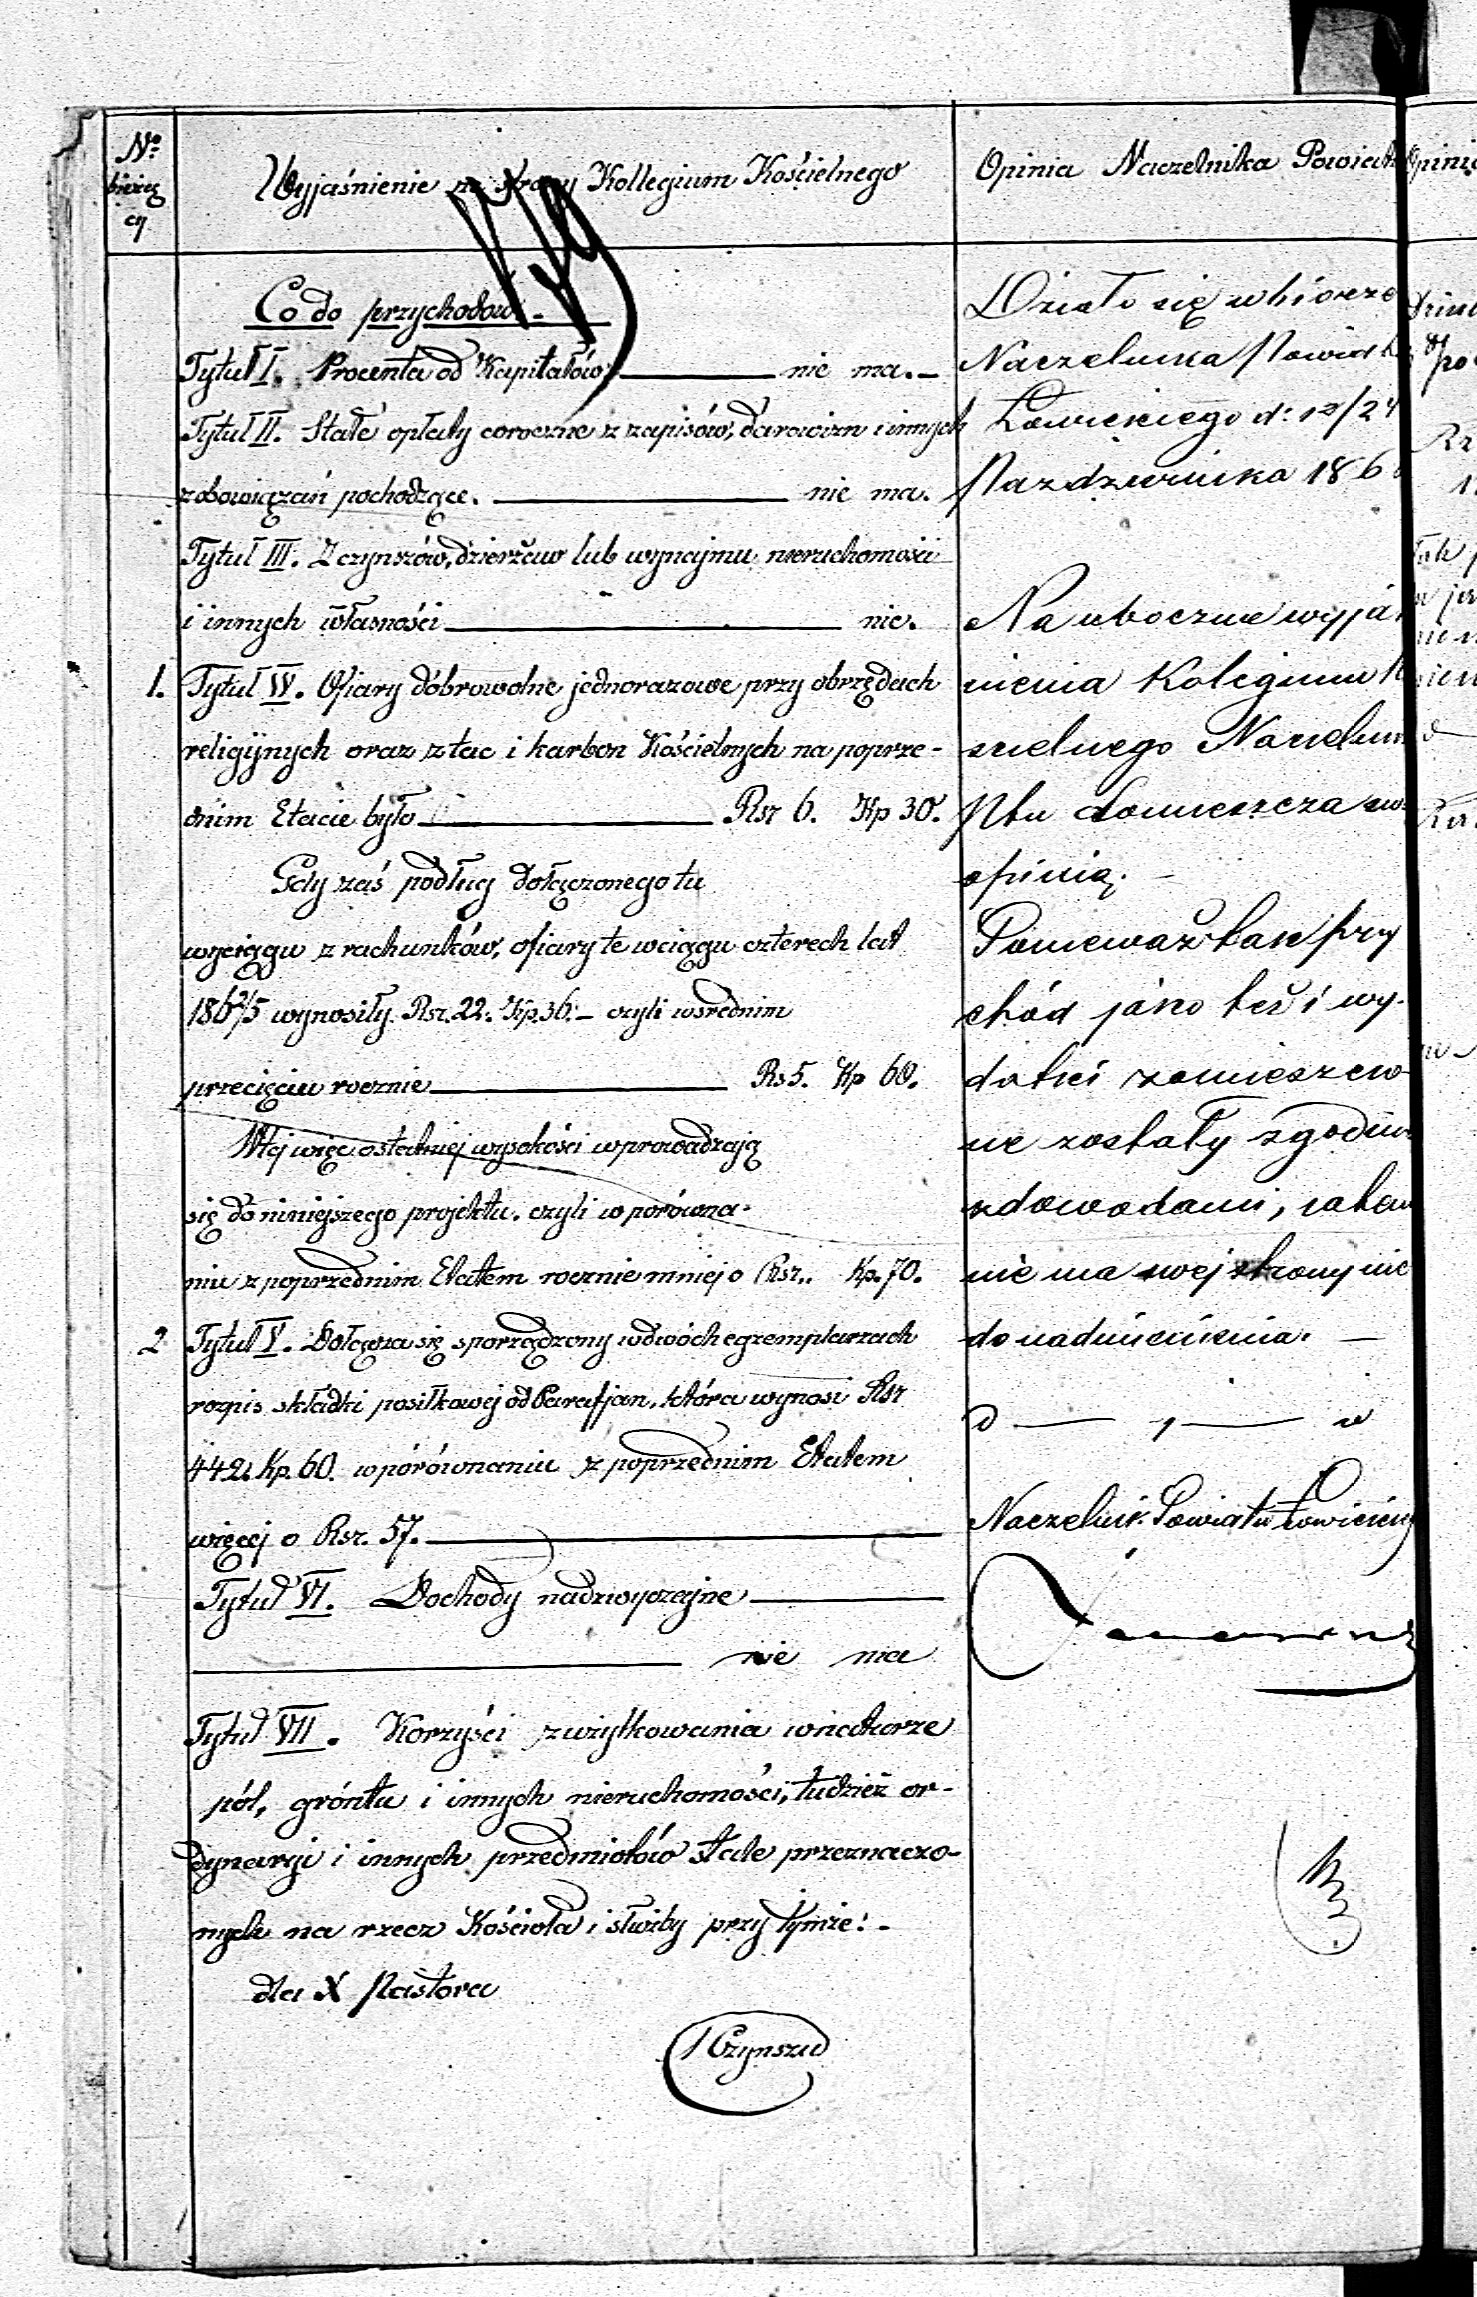 No
bieżą
cy
Wyjaśnienie ze strony Kollegium Kościelnego
Opinia Naczelnika Powiatu
Co do przychodów.
Tytuł I. Procenta od Kapitałów nie ma.
Tytuł II. Stałe opłaty coroczne z zapisów, darowizn i innych
zobowiązań pochodzące. nie ma.
Tytuł III. Z czynszów, dzierżaw lub wynajmu nieruchomości
i innych własności nic.
1. Tytuł IV. Ofiary dobrowolne jednorazowe przy obrzędach
religijnych oraz z tac i karbon Kościelnych na poprze-
dnim Etacie było Rsr 6. Kp 30.
Gdy zaś podług dołączonego tu
wyciągu z rachunków, ofiary te wciągu czterech lat
186 2/5 wynosiły Rsr. 22. Kp. 36. czyli w średnim
przecięciu rocznie Rs 5. Kp 60.
W tej więc ostatniej wysokości wprowadzają
się do niniejszego projektu. czyli w porówna-
niu z poprzednim Etatem rocznie mniej o Rsr.. Kp. 70.
2 Tytuł V. Dołącza się sporządzony w dwóch egzemplarzach
rozpis składki posiłkowej od Parafjan, która wynosi Rsr
442. Kp. 60. w porównaniu z poprzednim Etatem
więcej o Rsr. 57.
Tytuł VI. Dochody nadzwyczajne
nie ma
Tytuł VII. Korzyści z użytkowania w naturze
pól, gróntu i innych nieruchomości, tudzież or-
dynaryi i innych przedmiotów stale przeznaczo-
nych na rzecz Kościoła i służby przy tymże:
dla X Pastora
Działo się w biórze
Naczelnika Powiatu
Łowickiego d: 12/24
Pazdziernika 186
Na uboczne wyjaś
nienia Kolegium K
scielnego Naczelnik
Ptu domieszcza sw
opinią.
Ponieważ tak przy
chód jako też i wy-
datki zamieszczo-
ne zostały zgodnie
z dowodami, zatem
nie ma swej strony nic
do nadmienienia.
Naczelnik Powiatu Łowickieg